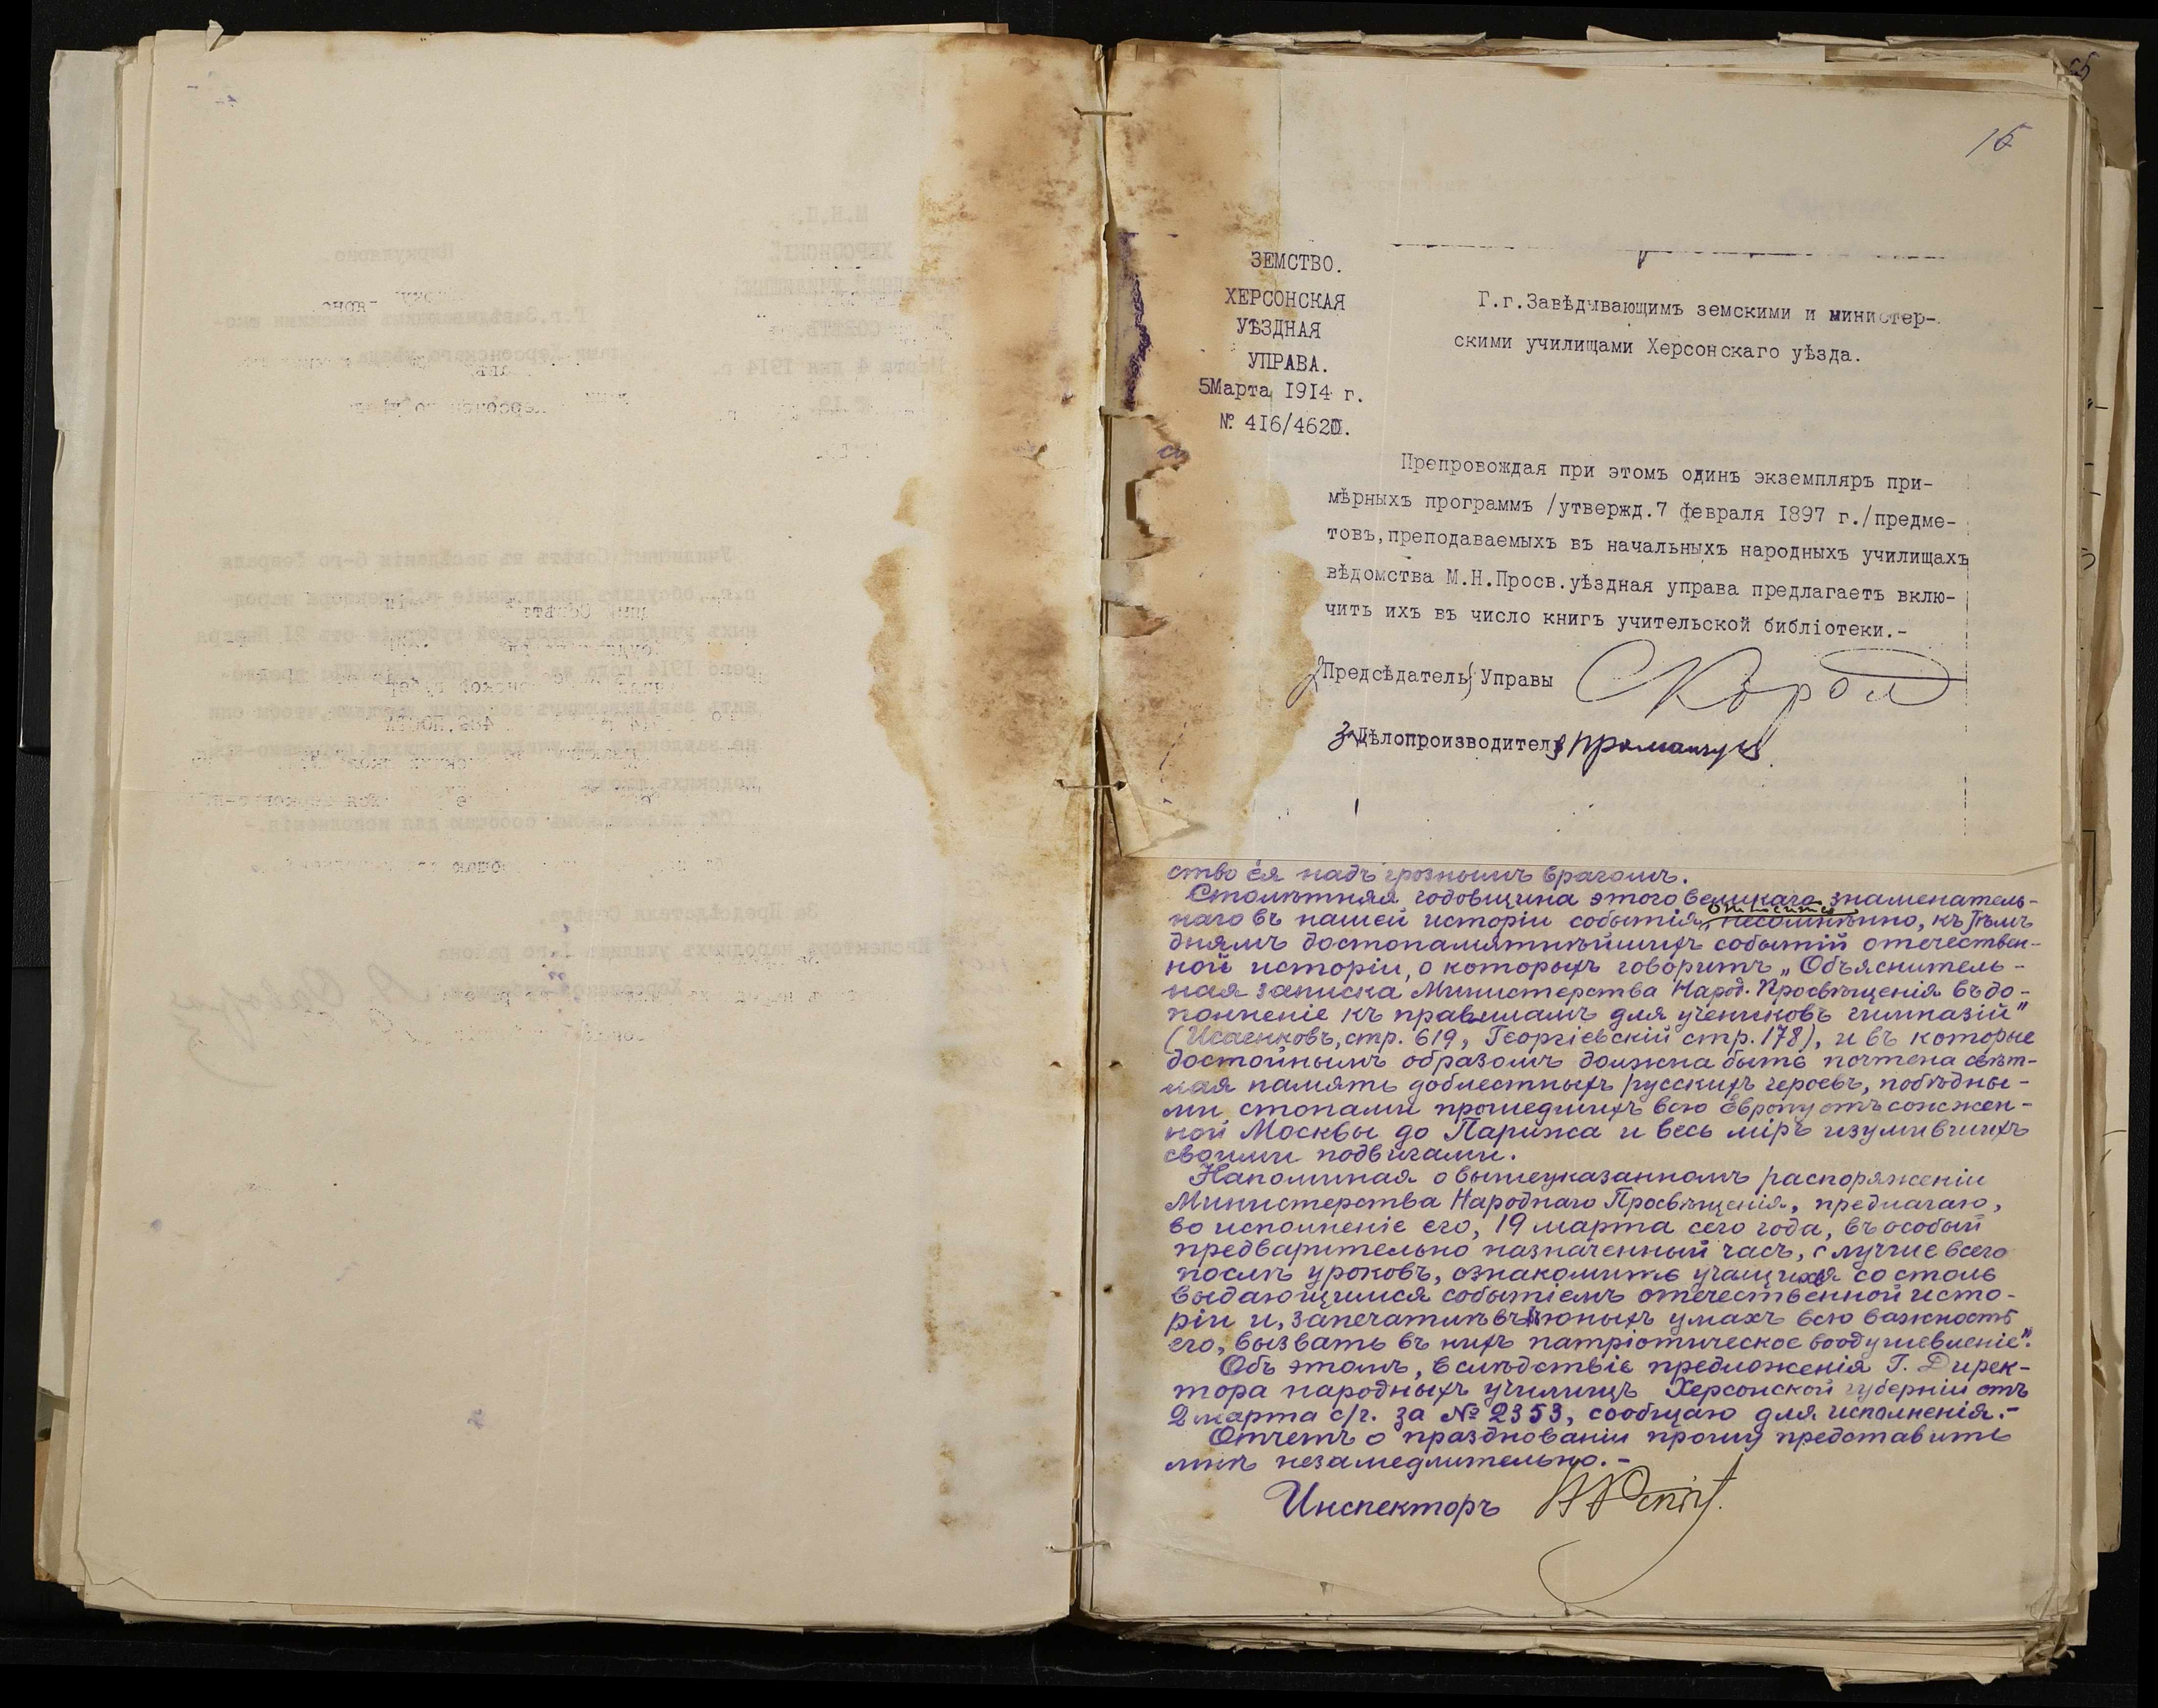 15
ЗЕМСТВО.
ХЕРСОНСКАЯ
УѢЗДНАЯ
УПРАВА.
5Марта 1914 г.
№ 416/4620.
Г.г.Завѣдывающимъ земскими и министер-
скими училищами Херсонскаго уѣзда.
Препровождая при этомъ одинъ экземпляръ при-
мѣрныхъ программъ /утвержд.7 февраля 1897 г./предме-
товъ,преподаваемыхъ въ начальныхъ народныхъ училищахъ
вѣдомства М.Н.Просв.уѣздная управа предлагаетъ вклю-
чить ихъ въ число книгъ учительской библіотеки.-
Предсѣдатель Управы
За Дѣлопроизводителя
ство ея надъ грознымъ врагомъ.
Столѣтняя годовщина этого великаго знаменатель-
наго въ нашей исторіи событія относится несомнѣнно, къ тѣмъ
днямъ достопамятнѣйшихъ событій отечествен-
ной исторіи, о которыхъ говоритъ „Объяснитель-
ная записка Министерства Народ. Просвѣщенія въ до-
полненіе къ правиламъ для учениковъ гимназій"
(Исаенковъ, стр. 619, Георгіевскій стр. 178), и въ которые
достойнымъ образомъ должна быть почтена свѣт-
лая память доблестныхъ русскихъ героевъ, побѣдны-
ми стопами прошедшихъ всю Европу отъ сожжен-
ной Москвы до Парижа и весь міръ изумившихъ
своими подвигами.
Напоминая о вышеуказанномъ распоряженіи
Министерства Народнаго Просвѣщенія, предлагаю,
во исполненіе его, 19 марта сего года, въ особый
предварительно назначенный часъ, лучше всего
послѣ уроковъ, ознакомить учащихся со столь
выдающимся событіемъ отечественной исто-
ріи и, запечатлѣвъ въ юныхъ умахъ всю важность
его, вызвать въ нихъ патріотическое воодушевленіе".
Объ этомъ, вслѣдствіе предложенія Г. Дирек-
тора народныхъ училищъ Херсонской губерніи отъ
2 марта с/г. за № 2353, сообщаю для исполненія.-
Отчетъ о праздновании прошу представить
мнѣ незамедлительно.-
Инспекторъ